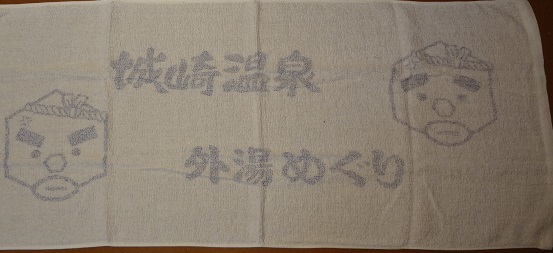 城崎温泉
外湯めぐり